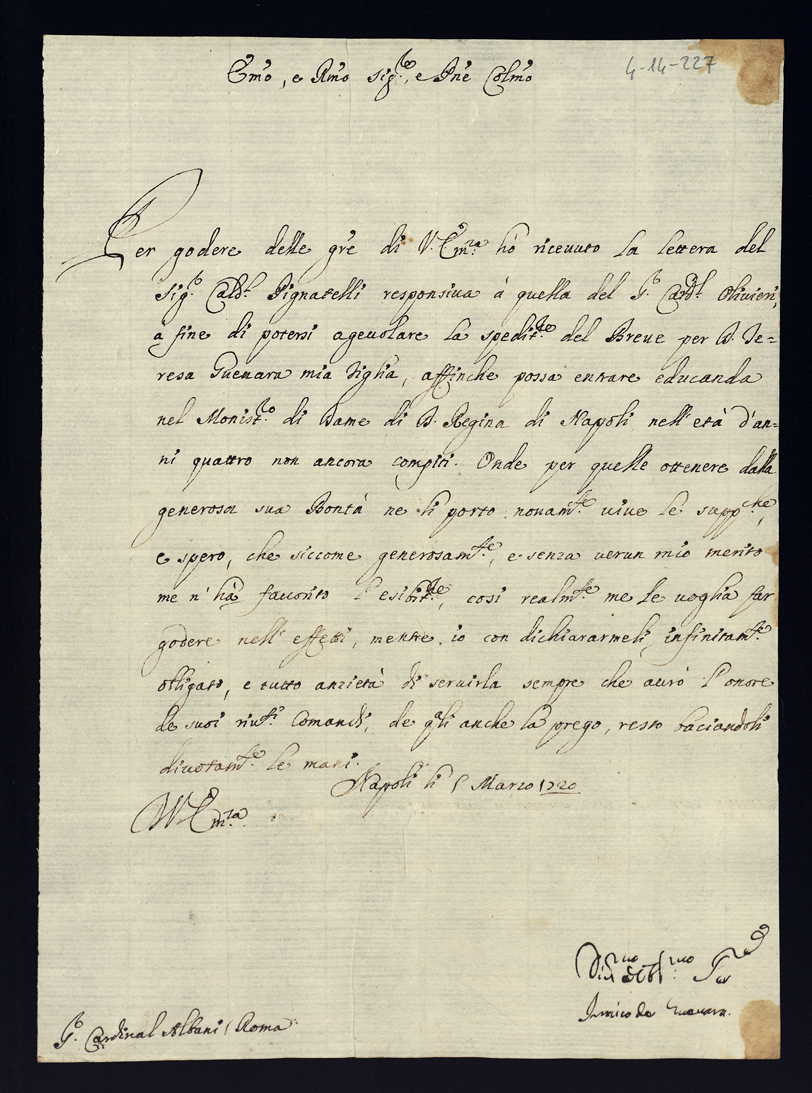 Emo, e Rmo Sig.re, e Pne Colmo
4-14-227
Per godere delle gre di V. Em.za hò riceuuto la lettera del
Sig.r Card.l Pignatelli responsiua à quella del S.r Card.l Oliuieri,
a fine di potersi ageuolare la spedit.ne del Breue per D. Te=
resa Gueuara mia figlia, affinche possa entrare educanda
nel Monist.ro di Dame di D. Regina di Napoli nell'età d'an=
ni quattro non ancora compiti. Onde per quelle ottenere dalla
generosa sua Bontà ne li porto nouam.te viue le supp.che,
e spero, che siccome generosam.te, e senza verun mio merito
me n'hà fauorito l'esibit.ne, così realm.te me le voglia far
godere nell'effetti, mentre io con dichiararmeli infinitam.te
obligato, e tutto anzietà di seruirla sempre che aurò l'onore
de suoi riu.ti Comandi, de q.li anche la prego, resto baciandoli
diuotam.te le mani.
Napoli li 5 Marzo 1720
V. Em.za
Innico de Gueuara.
S.r Cardinal Albani / Roma